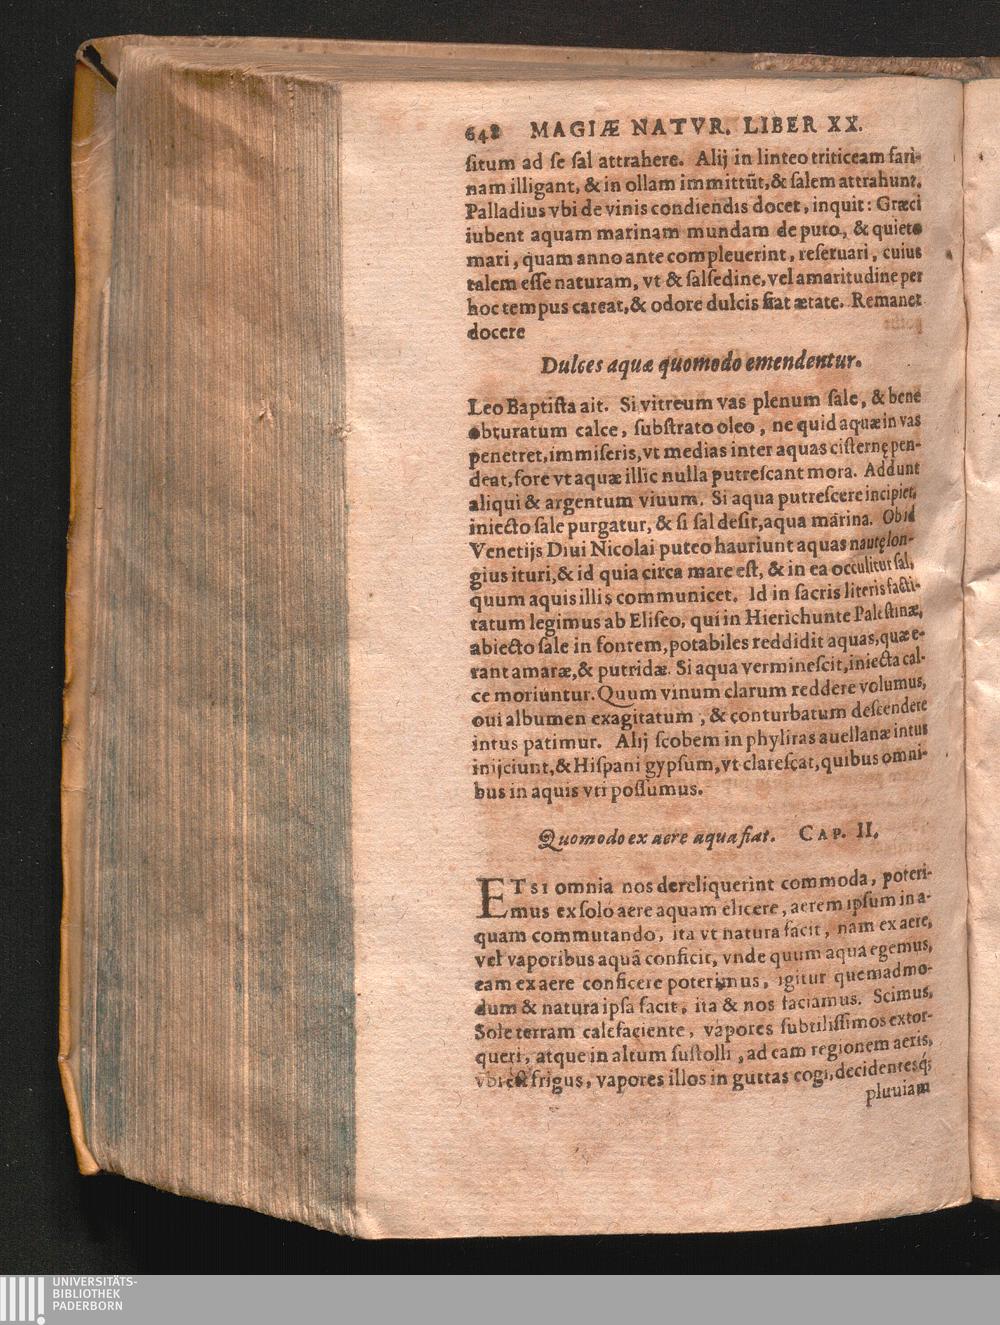 648 MAGIÆ NATVR. LIBER XX.
ſitum ad ſe ſal attrahere. Alij in linteo triticeam fari-
nam illigant, & in ollam immittūt, & ſalem attrahunt.
Palladius vbi de vinis condiendis docet, inquit: Græci
iubent aquam marinam mundam de puro, & quieto
mari, quam anno ante compleuerint, reſeruari, cuius
talem eſſe naturam, vt & ſalſedine, vel amaritudine per
hoc tempus careat, & odore dulcis fiat ætate. Remanet
docere
Dulces aquæ quomodo emendentur.
Leo Baptiſta ait. Si vitreum vas plenum ſale, & bene
obturatum calce, ſubſtrato oleo, ne quid aquæ in vas
penetret, immiſeris, vt medias inter aquas ciſternę pen-
deat, fore vt aquæ illic nulla putreſcant mora. Addunt
aliqui & argentum viuum. Si aqua putreſcere incipiet,
iniecto ſale purgatur, & ſi ſal deſit, aqua marina. Ob id
Venetijs Diui Nicolai puteo hauriunt aquas nautę lon-
gius ituri, & id quia circa mare eſt, & in ea occulitur ſal,
quum aquis illis communicet. Id in ſacris literis facti-
tatum legimus ab Eliſeo, qui in Hierichunte Paleſtinæ,
abiecto ſale in fontem, potabiles reddidit aquas, quæ e-
rant amaræ, & putridæ. Si aqua vermineſcit, iniecta cal-
ce moriuntur. Quum vinum clarum reddere volumus,
oui albumen exagitatum, & conturbatum deſcendere
intus patimur. Alij ſcobem in phyliras auellanæ intus
inijciunt, & Hiſpani gypſum, vt clareſcat, quibus omni-
bus in aquis vti poſſumus.
Quomodo ex aere aqua fiat. CAP. II.
ETSI omnia nos dereliquerint commoda, poteri-
mus ex ſolo aere aquam elicere, aerem ipſum in a-
quam commutando, ita vt natura facit, nam ex aere,
vel vaporibus aquā conficit, vnde quum aqua egemus,
eam ex aere conficere poterimus, igitur quemadmo-
dum & natura ipſa facit, ita & nos faciamus. Scimus,
Sole terram calefaciente, vapores ſubtiliſſimos extor-
queri, atque in altum ſuſtolli, ad eam regionem aeris,
vbi eſt frigus, vapores illos in guttas cogi, decidentesq́;
pluuiam
UNIVERSITÄTS-
BIBLIOTHEK
PADERBORN